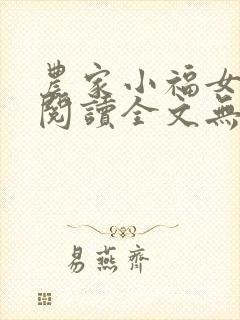 農家小福女
閱讀全文無
易燕齊